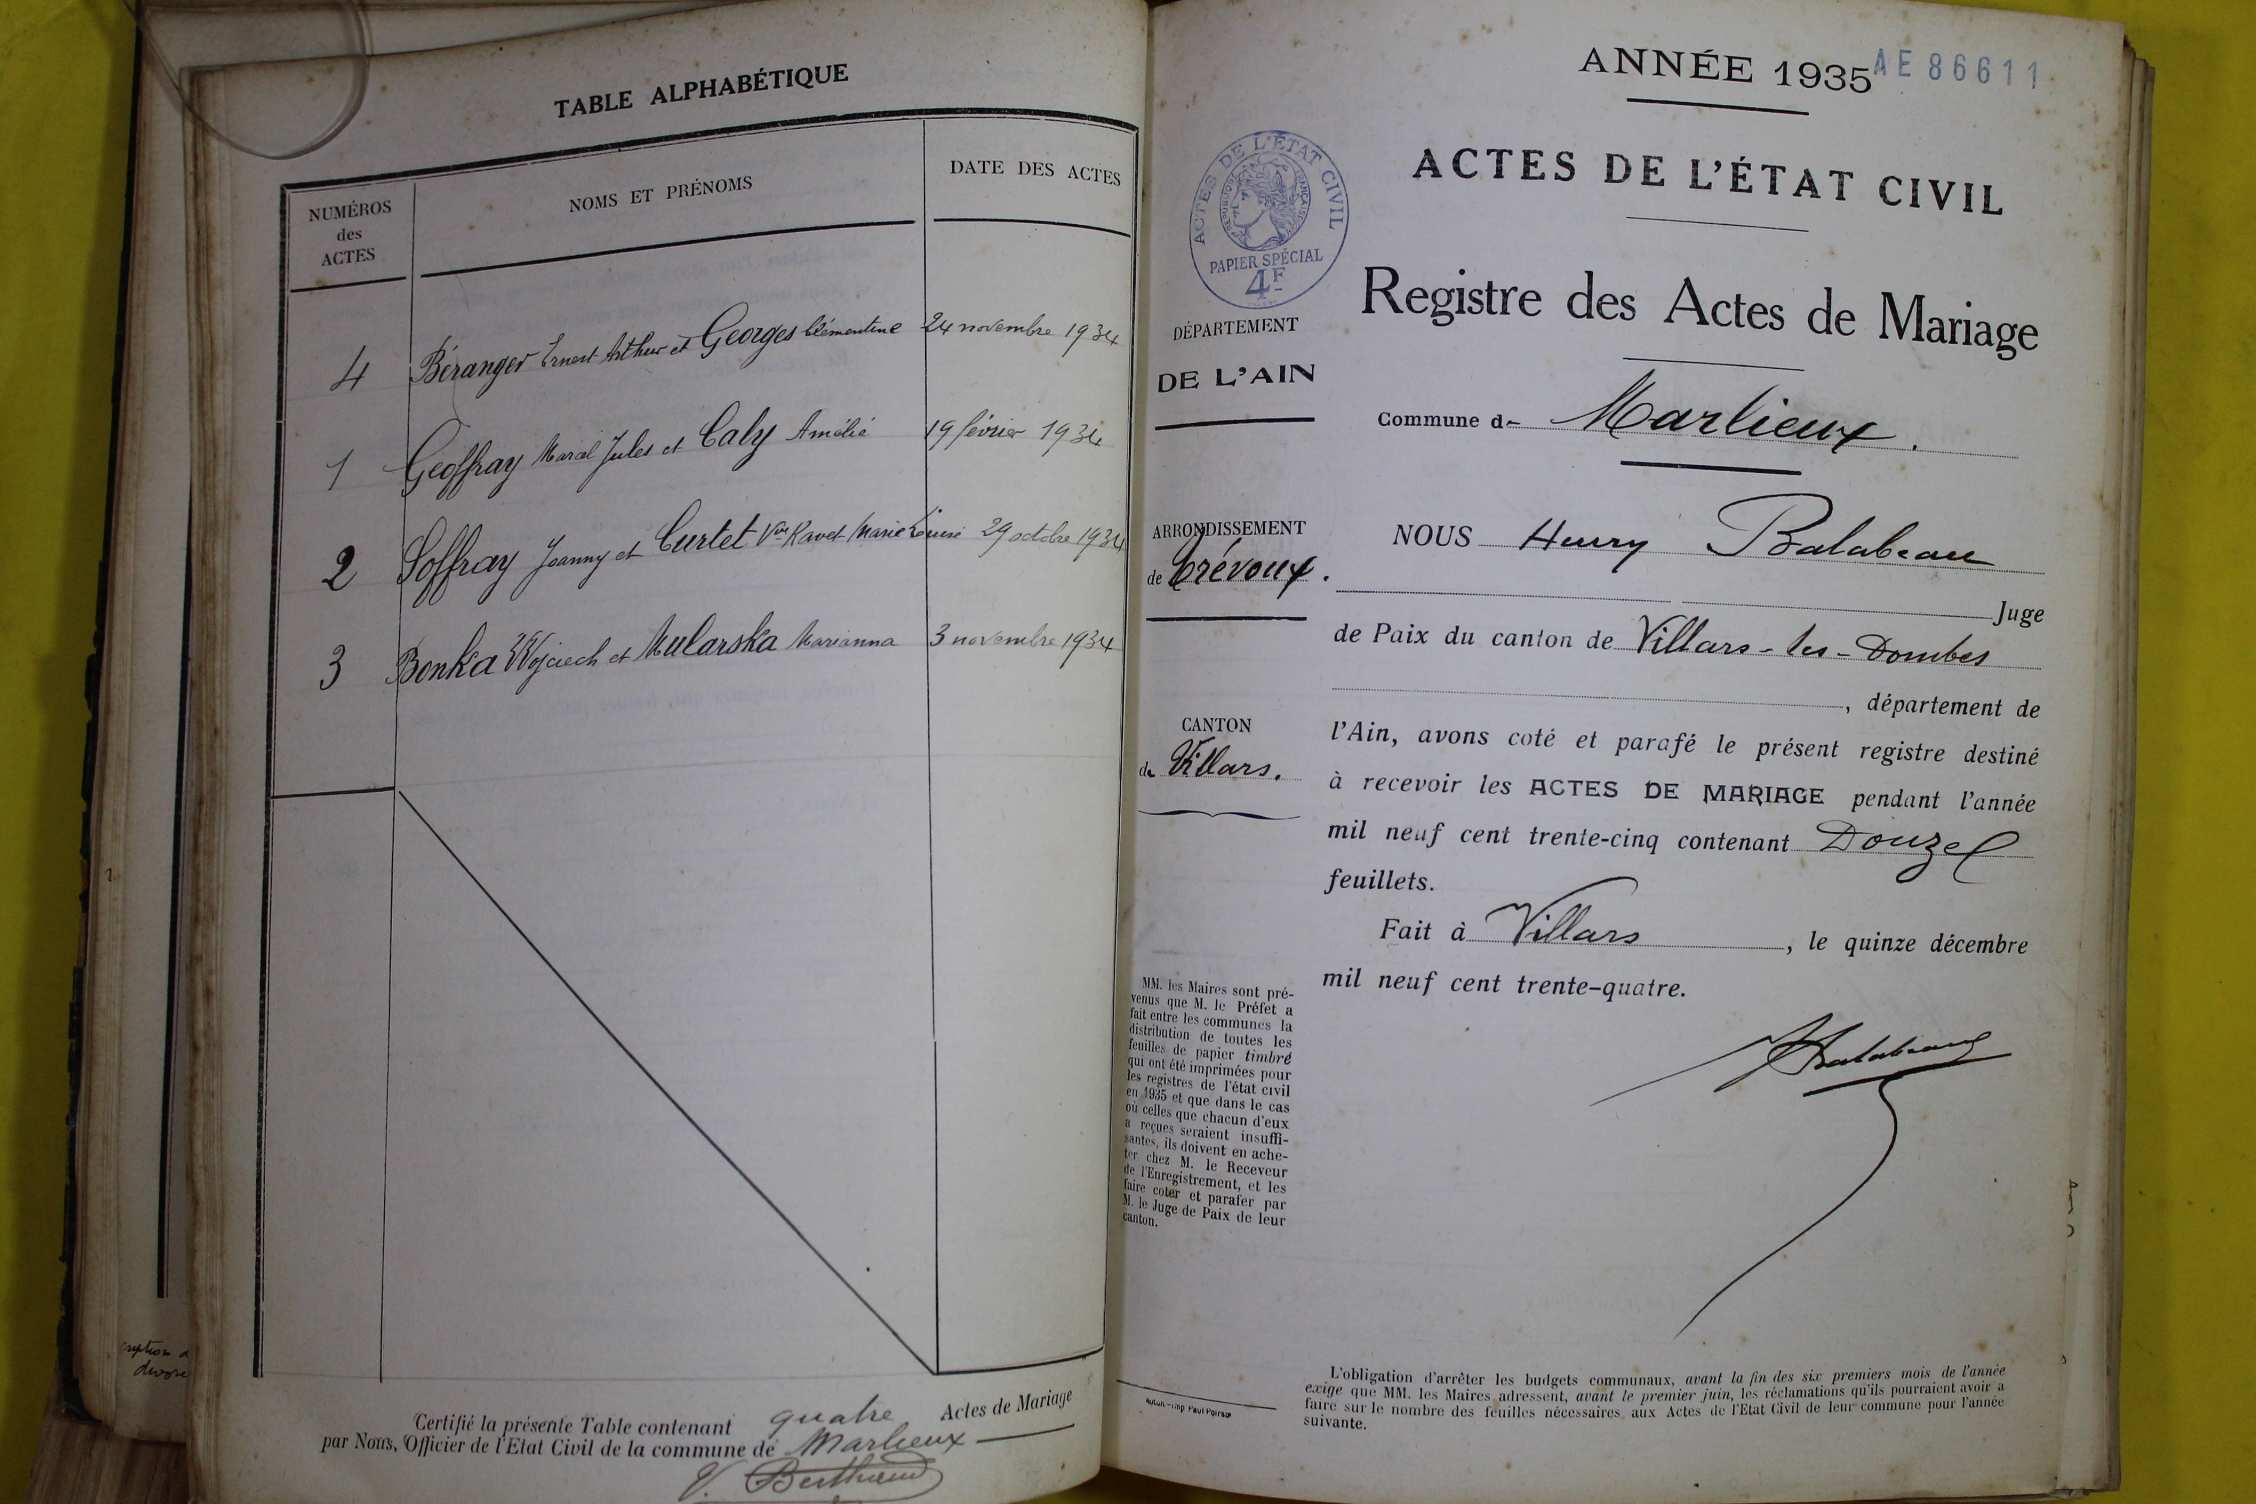 TABLE ALPHABÉTIQUE
NUMÉROS
des
ACTES
NOMS ET PRÉNOMS
DATE DES ACTES
4 Béranger Ernest Arthur et Georges Clémentine 24 novembre 1934
1 Geoffray Marcel Jules et Caly Amélie 19 février 1934
2 Soffray Joanny et Curtet Vve Ravet Marie Louise 29 octobre 1934
3 Bonka Wojciech et Mularska Marianna 3 novembre 1934
Certifié la présente Table contenant quatre Actes de Mariage
par Nous, Officier de l'Etat Civil de la commune de Marlieux
V. Berthaud
cription d
divorce
ANNÉE 1935
AE 86611
ACTES DE L'ÉTAT CIVIL
RÉPUBLIQUE FRANÇAISE
PAPIER SPÉCIAL
4F
ACTES DE L'ÉTAT CIVIL
Registre des Actes de Mariage
DÉPARTEMENT
DE L'AIN
Commune de Marlieux.
ARRONDISSEMENT
de Trévoux.
CANTON
de Villars.
NOUS Henry Balabeau
Juge
de Paix du canton de Villars-les-Dombes
, département de
l'Ain, avons coté et parafé le présent registre destiné
à recevoir les ACTES DE MARIAGE pendant l'année
mil neuf cent trente-cinq contenant Douze
feuillets.
Fait à Villars, le quinze décembre
mil neuf cent trente-quatre.
HBalabeau
MM. les Maires sont pré-
venus que M. le Préfet a
fait entre les communes la
distribution de toutes les
feuilles de papier timbré
qui ont été imprimées pour
les registres de l'état civil
en 1935 et que dans le cas
où celles que chacun d'eux
a reçues seraient insuffi-
santes, ils doivent en ache-
ter chez M. le Receveur
de l'Enregistrement, et les
faire coter et parafer par
M. le Juge de Paix de leur
canton.
L'obligation d'arrêter les budgets communaux, avant la fin des six premiers mois de l'année
exige que MM. les Maires adressent, avant le premier juin, les réclamations qu'ils pourraient avoir à
faire sur le nombre des feuilles nécessaires aux Actes de l'Etat Civil de leur commune pour l'année
suivante.